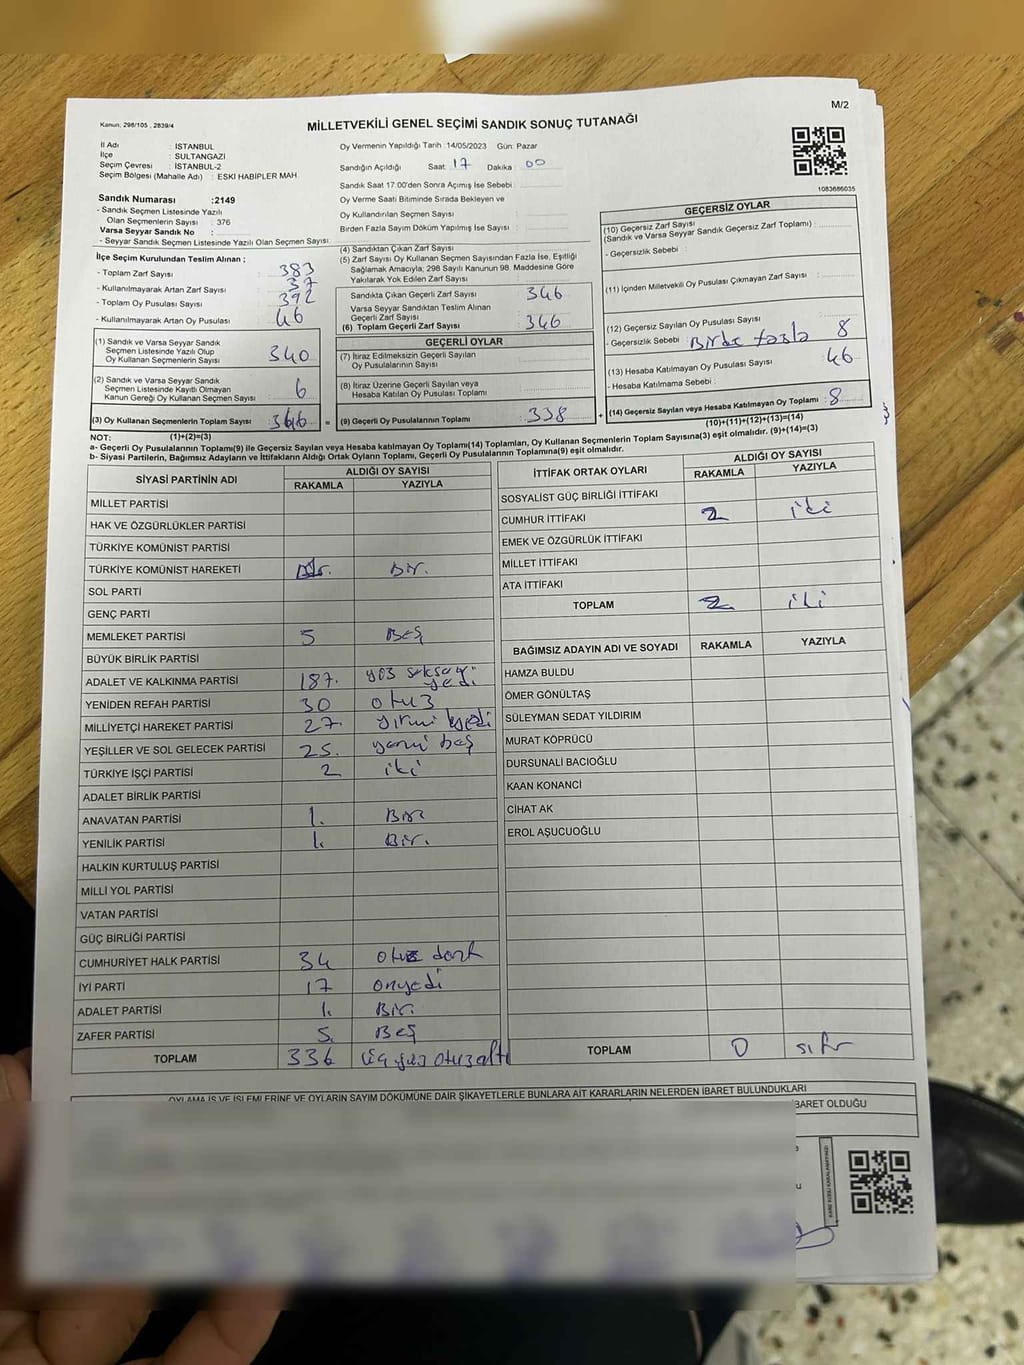 M/2
Kanun: 298/105 , 2839/4
MİLLETVEKİLİ GENEL SEÇİMİ SANDIK SONUÇ TUTANAĞI
İl Adı : İSTANBUL
İlçe : SULTANGAZİ
Seçim Çevresi : İSTANBUL-2
Seçim Bölgesi (Mahalle Adı) : ESKİ HABİPLER MAH.
Sandık Numarası :2149
- Sandık Seçmen Listesinde Yazılı
Olan Seçmenlerin Sayısı : 376
Varsa Seyyar Sandık No :
- Seyyar Sandık Seçmen Listesinde Yazılı Olan Seçmen Sayısı:
Oy Vermenin Yapıldığı Tarih :14/05/2023 Gün: Pazar
Sandığın Açıldığı Saat: 17 Dakika : 00
Sandık Saat 17.00'den Sonra Açımış İse Sebebi :
Oy Verme Saati Bitiminde Sırada Bekleyen ve
Oy Kullandırılan Seçmen Sayısı :
Birden Fazla Sayım Döküm Yapılmış İse Sayısı :
1083686035
İlçe Seçim Kurulundan Teslim Alınan ;
- Toplam Zarf Sayısı : 383
- Kullanılmayarak Artan Zarf Sayısı : 37
- Toplam Oy Pusulası Sayısı : 392
- Kullanılmayarak Artan Oy Pusulası : 46
(1) Sandık ve Varsa Seyyar Sandık
Seçmen Listesinde Yazılı Olup
Oy Kullanan Seçmenlerin Sayısı : 340
(2) Sandık ve Varsa Seyyar Sandık
Seçmen Listesinde Kayıtlı Olmayan
Kanun Gereği Oy Kullanan Seçmen Sayısı : 6
(3) Oy Kullanan Seçmenlerin Toplam Sayısı : 346
(4) Sandıktan Çıkan Zarf Sayısı :
(5) Zarf Sayısı Oy Kullanan Seçmen Sayısından Fazla İse, Eşitliği
Sağlamak Amacıyla, 298 Sayılı Kanunun 98. Maddesine Göre
Yakılarak Yok Edilen Zarf Sayısı :
Sandıkta Çıkan Geçerli Zarf Sayısı : 346
Varsa Seyyar Sandıktan Teslim Alınan
Geçerli Zarf Sayısı :
(6) Toplam Geçerli Zarf Sayısı : 346
GEÇERLİ OYLAR
(7) İtiraz Edilmeksizin Geçerli Sayılan
Oy Pusulalarının Sayısı :
(8) İtiraz Üzerine Geçerli Sayılan veya
Hesaba Katılan Oy Pusulalarının Sayısı :
= (9) Geçerli Oy Pusulalarının Toplamı : 338 +
GEÇERSİZ OYLAR
(10) Geçersiz Zarf Sayısı
(Sandık ve Varsa Seyyar Sandık Geçersiz Zarf Toplamı) :
- Geçersizlik Sebebi :
(11) İçinden Milletvekili Oy Pusulası Çıkmayan Zarf Sayısı :
(12) Geçersiz Sayılan Oy Pusulası Sayısı : 8
- Geçersizlik Sebebi : Birde fazla
(13) Hesaba Katılmayan Oy Pusulası Sayısı : 46
- Hesaba Katılmama Sebebi :
(14) Geçersiz Sayılan veya Hesaba Katılmayan Oy Toplamı : 8
(10)+(11)+(12)+(13)=(14)
NOT: (1)+(2)=(3)
a- Geçerli Oy Pusulalarının Toplamı(9) ile Geçersiz Sayılan veya Hesaba katılmayan Oy Toplamı(14) Toplamları, Oy Kullanan Seçmenlerin Toplam Sayısına(3) eşit olmalıdır. (9)+(14)=(3)
b- Siyasi Partilerin, Bağımsız Adayların ve İttifakların Aldığı Ortak Oyların Toplamı, Geçerli Oy Pusulalarının Toplamına(9) eşit olmalıdır.
SİYASİ PARTİNİN ADI ALDIĞI OY SAYISI
RAKAMLA YAZIYLA
MİLLET PARTİSİ
HAK VE ÖZGÜRLÜKLER PARTİSİ
TÜRKİYE KOMÜNİST PARTİSİ
TÜRKİYE KOMÜNİST HAREKETİ Bir.
SOL PARTİ
GENÇ PARTİ
MEMLEKET PARTİSİ 5 Beş
BÜYÜK BİRLİK PARTİSİ
ADALET VE KALKINMA PARTİSİ 187. yüz seksen yedi
YENİDEN REFAH PARTİSİ 30 otuz
MİLLİYETÇİ HAREKET PARTİSİ 27. yirmi yedi
YEŞİLLER VE SOL GELECEK PARTİSİ 25. yirmi beş
TÜRKİYE İŞÇİ PARTİSİ 2 iki
ADALET BİRLİK PARTİSİ
ANAVATAN PARTİSİ 1. Bir
YENİLİK PARTİSİ 1. Bir.
HALKIN KURTULUŞ PARTİSİ
MİLLİ YOL PARTİSİ
VATAN PARTİSİ
GÜÇ BİRLİĞİ PARTİSİ
CUMHURİYET HALK PARTİSİ 34 otuz dört
İYİ PARTİ 17 onyedi
ADALET PARTİSİ 1. Bir.
ZAFER PARTİSİ 5. Beş
TOPLAM 336 üç yüz otuz altı
İTTİFAK ORTAK OYLARI ALDIĞI OY SAYISI
RAKAMLA YAZIYLA
SOSYALİST GÜÇ BİRLİĞİ İTTİFAKI
CUMHUR İTTİFAKI 2 iki
EMEK VE ÖZGÜRLÜK İTTİFAKI
MİLLET İTTİFAKI
ATA İTTİFAKI
TOPLAM 2 iki
BAĞIMSIZ ADAYIN ADI VE SOYADI RAKAMLA YAZIYLA
HAMZA BULDU
ÖMER GÖNÜLTAŞ
SÜLEYMAN SEDAT YILDIRIM
MURAT KÖPRÜCÜ
DURSUNALİ BACIOĞLU
KAAN KONANCİ
CİHAT AK
EROL AŞUCUOĞLU
TOPLAM 0 sıfır
OYLAMA İŞ VE İŞLEMLERİNE VE OYLARIN SAYIM DÖKÜMÜNE DAİR ŞİKAYETLERLE BUNLARA AİT KARARLARIN NELERDEN İBARET BULUNDUKLARI
BARET OLDUĞU